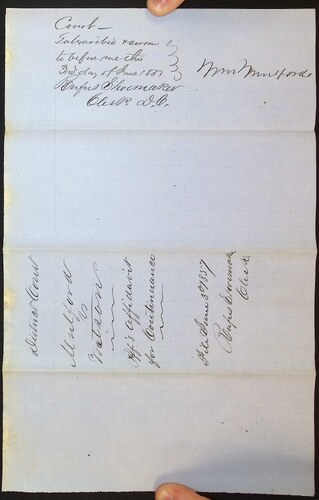 Court –
Subscribed & sworn
to before me this
3rd day of June 1857
Rufus Shoemaker
Clerk D.C.
Wm Mulford
District Court
Mulford
vs
Watson
Pff's Affidavit
for Continuance
File June 3d 1857
Rufus Shoemaker
Clerk